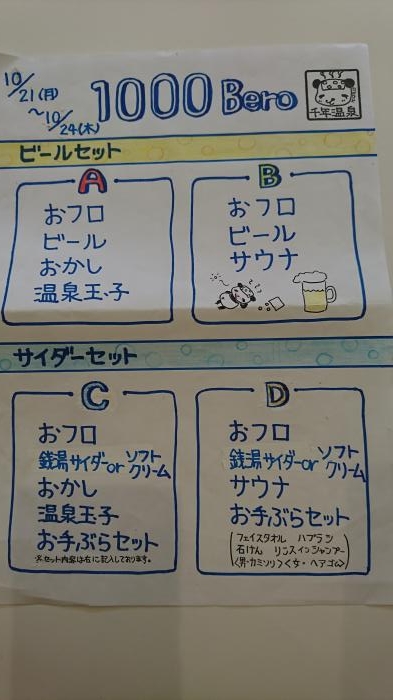 10/21(月)
〜10/24(木)
1000 Bero
千年温泉
ビールセット
A
おフロ
ビール
おかし
温泉玉子
B
おフロ
ビール
サウナ
サイダーセット
C
おフロ
銭湯サイダーor ソフトクリーム
おかし
温泉玉子
お手ぶらセット
※セット内容は右に記入しております。
D
おフロ
銭湯サイダーor ソフトクリーム
サウナ
お手ぶらセット
(フェイスタオル ハブラシ
石けん リンスインシャンプー
〈男・カミソリ〉〈女・ヘアゴム〉)